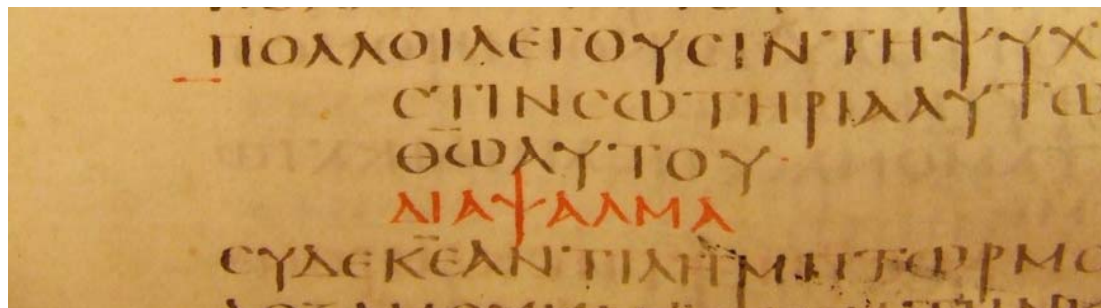 ΠΟΛΛΟΙΛΕΓΟΥϹΙΝΤΗΨΥΧ
ϹΤΙΝϹΩΤΗΡΙΑΑΥΤΩ
Θ̅Ω̅ΑΥΤΟΥ·
ΔΙΑΨΑΛΜΑ
ϹΥΔΕΚ̅Ε̅ΑΝΤΙΛΗΜΠΤΩΡΜΟ